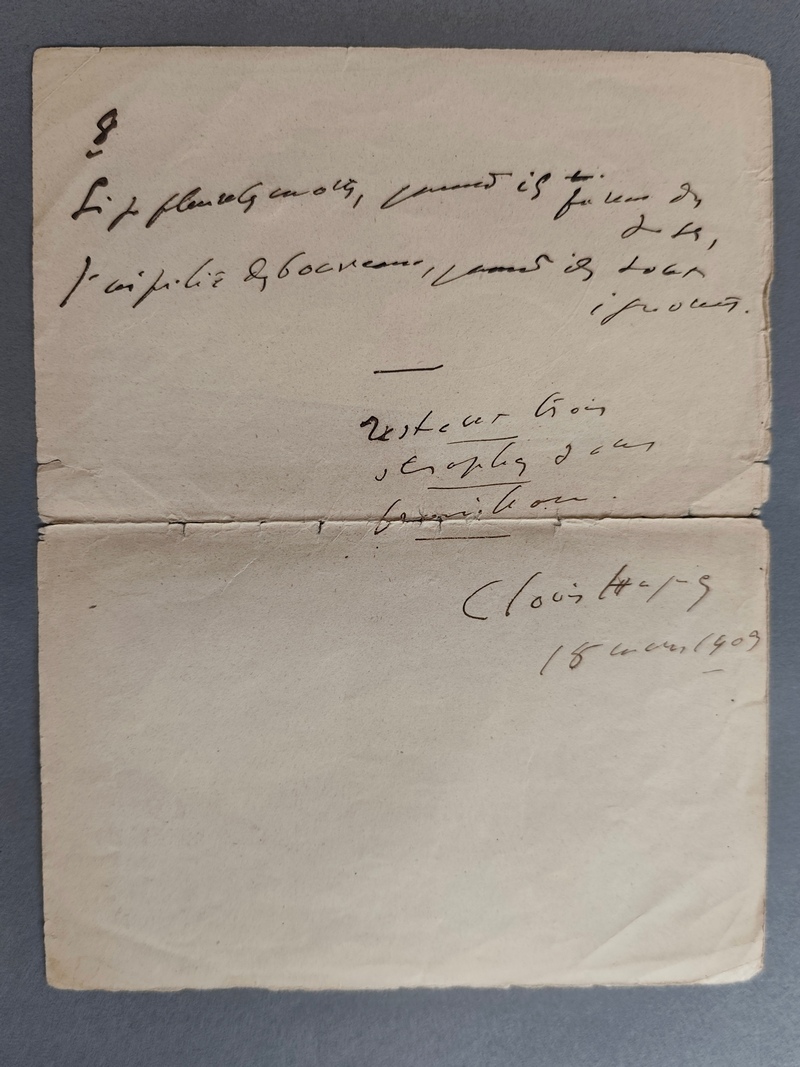 8
Si je pleure les morts, quand ils furent des
J'ai pitié des bourreaux, quand ils sont
ignorants.
restent trois
strophes dans
Clovis Hugues
18 mars 1903